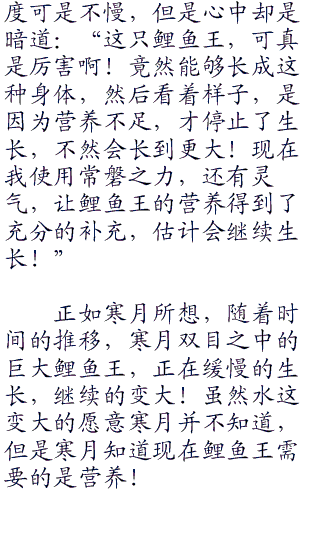 度可是不慢，但是心中却是
暗道：“这只鲤鱼王，可真
是厉害啊！竟然能够长成这
种身体，然后看着样子，是
因为营养不足，才停止了生
长，不然会长到更大！现在
我使用常磐之力，还有灵
气，让鲤鱼王的营养得到了
充分的补充，估计会继续生
长！”
正如寒月所想，随着时
间的推移，寒月双目之中的
巨大鲤鱼王，正在缓慢的生
长，继续的变大！虽然水这
变大的愿意寒月并不知道，
但是寒月知道现在鲤鱼王需
要的是营养！